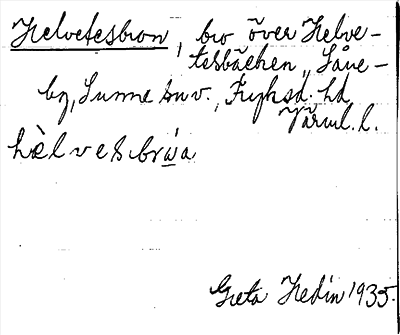 Helvetesbron, bro över Helve-
tesbäcken, Såne-
by, Sunne snv., Fryksd. hd
Värml. l.
hèlvesbrùa
Greta Hedin 1935.